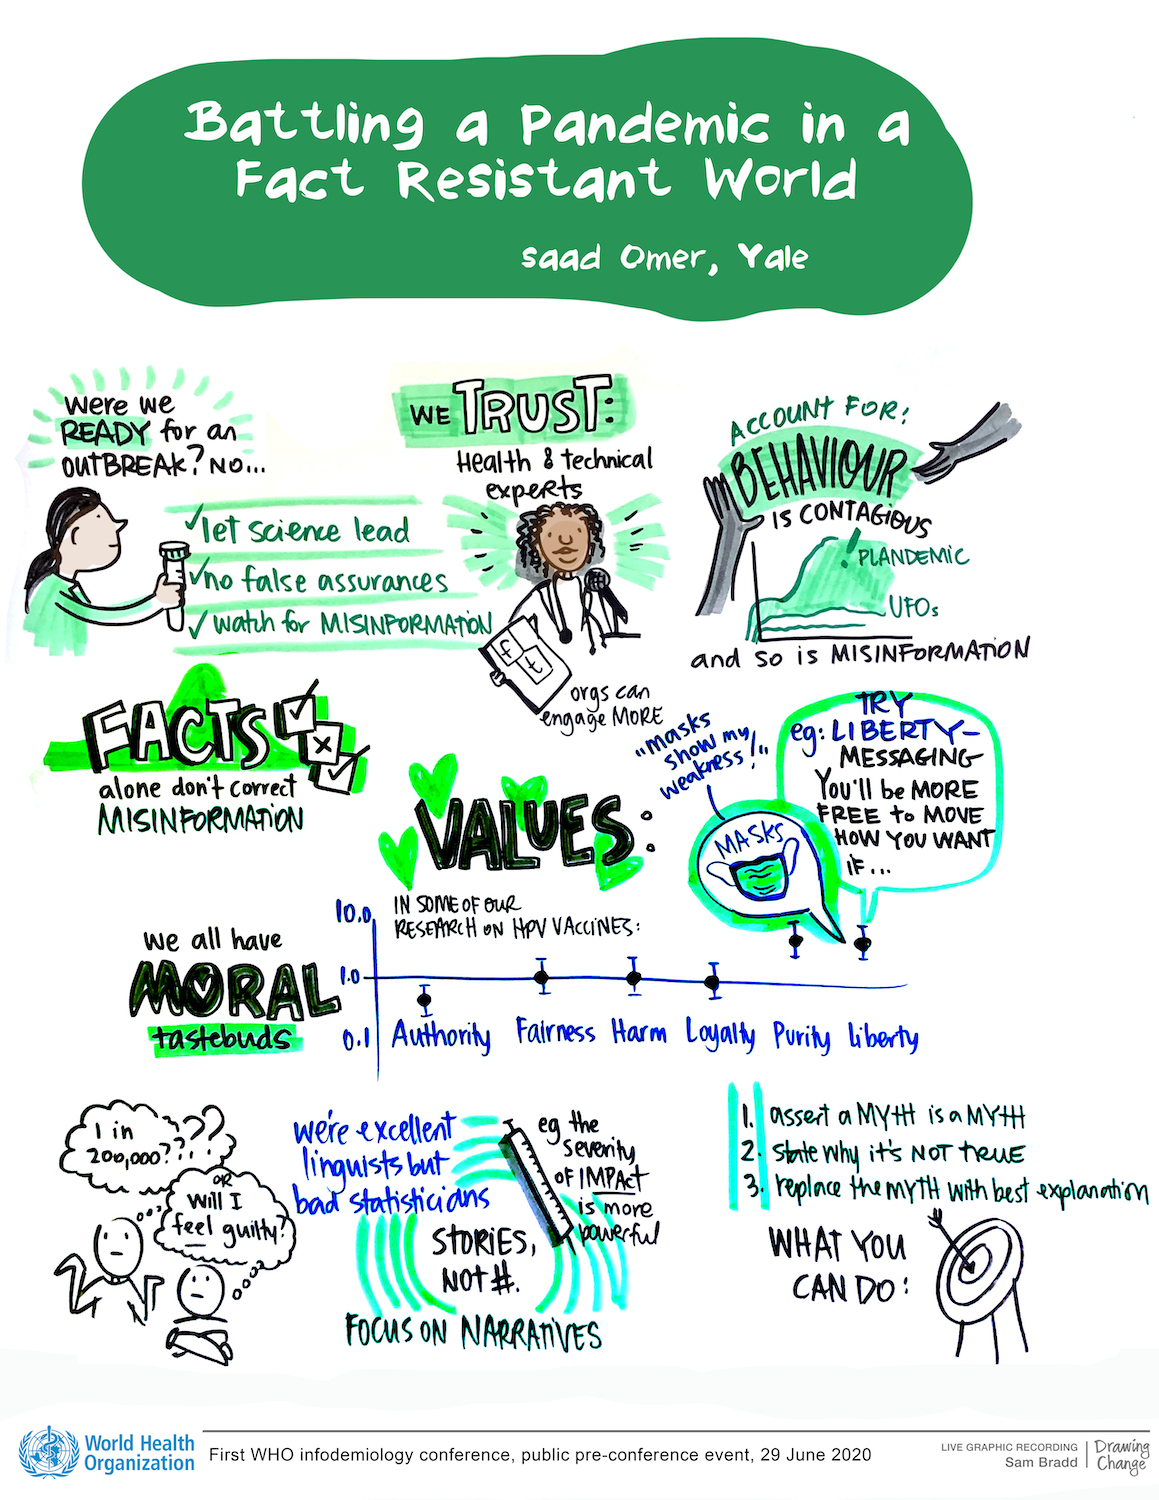 Battling a Pandemic in a
Fact Resistant World
Saad Omer, Yale
Were we
READY for an
OUTBREAK? NO...
✓let science lead
✓no false assurances
✓watch for MISINFORMATION
WE TRUST:
Health & technical
experts
f
t
orgs can
engage MORE
ACCOUNT FOR:
BEHAVIOUR
IS CONTAGIOUS
! PLANDEMIC
UFOs
and so is MISINFORMATION
FACTS
alone don't correct
MISINFORMATION
VALUES:
"masks
show my
weakness!"
MASKS
TRY
eg: LIBERTY-
MESSAGING
You'll be MORE
FREE to MOVE
HOW YOU WANT
iF...
we all have
MORAL
tastebuds
IN SOME OF OUR
RESEARCH ON HPV VACCINES:
10.0
1.0
0.1
Authority Fairness Harm Loyalty Purity liberty
1 in
200,000????
OR
Will I
feel guilty?
we're excellent
linguists but
bad statisticians
eg the
severity
OF IMPAct
is more
powerful
STORIES,
NOT #.
FOCUS ON NARRATIVES
1. assert a MYTH is a MYTH
2. state why it's NOT TRUE
3. replace the MYTH with best explanation
WHAT YOU
CAN DO:
World Health
Organization
First WHO infodemiology conference, public pre-conference event, 29 June 2020
LIVE GRAPHIC RECORDING
Sam Bradd
Drawing
Change